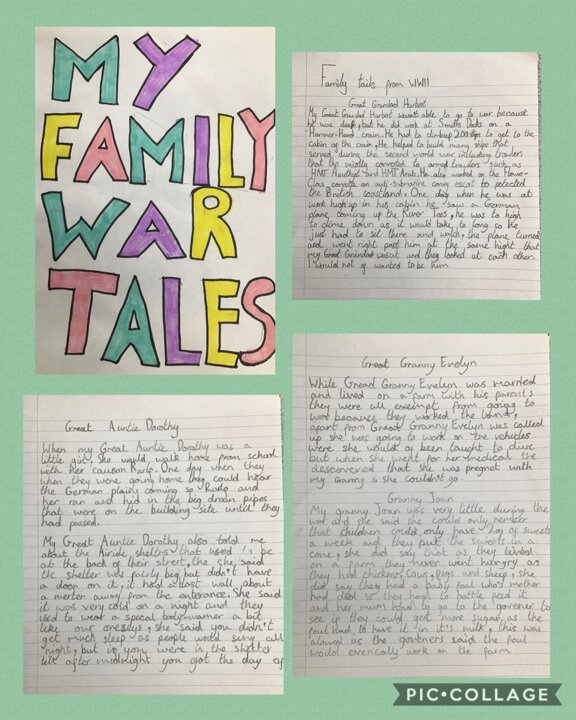 MY
FAMILY
WAR
TALES
Family tails from WWII
Great Grandad Hurbert
My Great Grandad Hurbert wasn't able to go to war because
he was deaf, but he did work at Smiths Docks on a
Hammer-Head crain. He had to climb up 200 steps to get to the
cabin of the crain. He helped to build many ships that
served during the second world war including trawlers
that the navy converted to armed trawlers such as
HMT Amethyst and HMT Arab. He also worked on the Flower-
Clas corvette an anti-submarine convoy escort to pretected
the British coastland. One day when he was at
work high up in his cabin he saw a German
plane coming up the River Tees, he was to high
to clime down as it would take to long so he
just had to sit there and watch, the plane turned
and went right past him at the same hight that
my Great Grandad was at and they looked at each other.
I would not of wanted to be him
Great Auntie Dorothy
When my Great Auntie Dorothy was a
little girl, she would walk home from school
with her causon Rorly. One day when they
when they were going home they could hear
the German plains coming so Rorly and
her ran and hid in the big drain pipes
that were on the building site until they
had pased.
My Great Auntie Dorothy also told me
about the Airide shelters that used to be
at the back of their street, the she, said
the shelter was fairly big but didn't have
a door on it, it had a blast wall about
a merter away from the enterance. She said
it was very cold on a night and they
used to wear a specal bodywarmer a bit
like our onesys, she said you didn't
get much sleep as people would sing all
night, but if you were in the shelter
till after midnight you got the day of
Great Granny Evelyn
While Gread Granny Evelyn was married
and lived on a farm with his parents
they were all exempt from going to
war because they worked the land,
apart from Great Granny Evelyn was called
up she was going to work on the vehicles
were she would of been taught to dive
but when she went for her medical the
descovered that she was pregnet with
my Granny so she couldn't go.
Granny Joan
My granny Joan was very little during the
war and she said she could only rember
that children could only have 2oz of sweets
a week and they put the sweets in a
cone, she did say that as they lived
on a farm they never went hungry as
they had chickens, cows, pigs and sheep, she
did say they had a baby foul who's mother
had died so they had to bottle feed it
and her mum had to go to the goverer to
see if they could get more sugar as the
foul had to have it in it's milk, this was
alowed as the goverers said the foul
would evencally work on the farm
PIC•COLLAGE